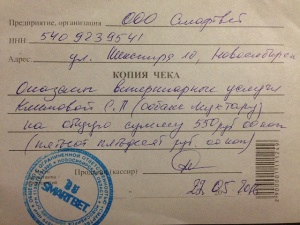 Предприятие, организация ООО Смартвет
ИНН: 5409239541
Адрес: ул. Шекспира 10, Новосибирск
КОПИЯ ЧЕКА
Оказаны ветеринарные услуги
Климовой С.П (собаке Мухтару)
на общую сумму 550 руб 00 коп
(пятьсот пятьдесят руб 00 коп)
SMARTВЕТ
Продавец (кассир)